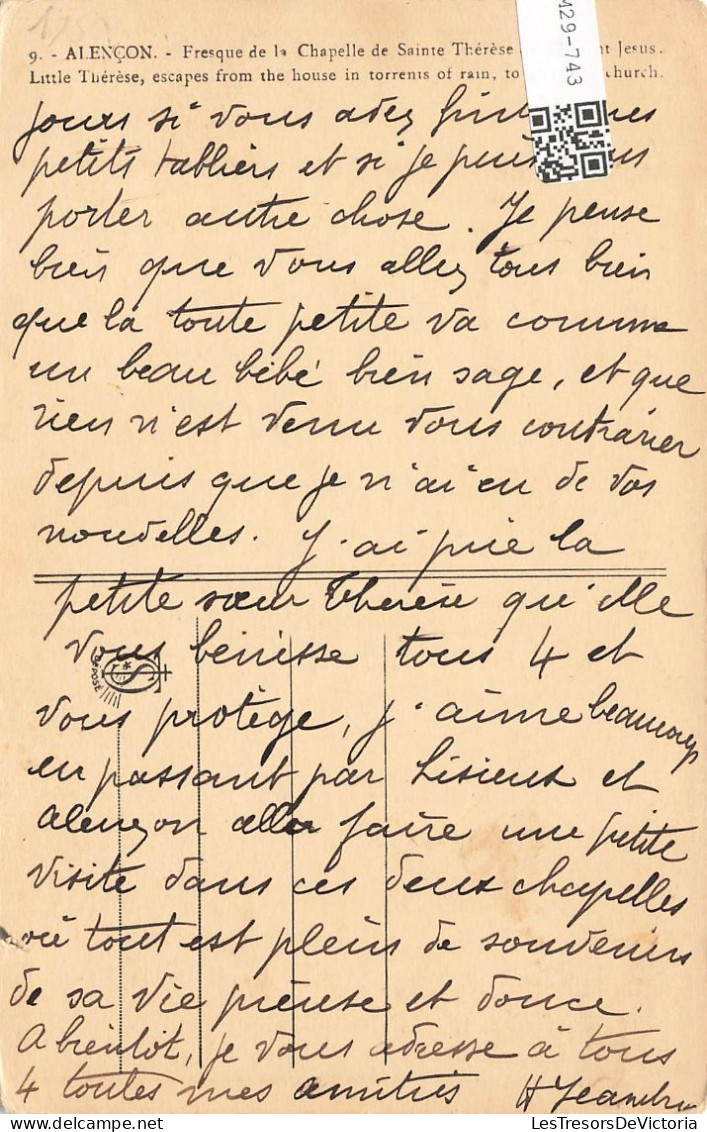 9. - ALENÇON. - Fresque de la Chapelle de Sainte Thérèse nt Jesus.
Little Thérèse, escapes from the house in torrents of rain, to church.
M29-743
jours si vous avez
petits tabliers et si je puis
porter autre chose. Je pense
bien que vous allez tous bien
que la toute petite va comme
un beau bébé bien sage, et que
rien n'est venu vous contrarier
depuis que je n'ai eu de vos
nouvelles. J'ai prié la
petite sœur Thérèse qu'elle
vous bénisse tous 4 et
DÉPOSÉ
vous protège, j'aime beaucoup
en passant par Lisieux et
Alençon aller faire une petite
visite dans ces deux chapelles
où tout est plein de souvenirs
de sa vie pieuse et douce.
A bientôt, je vous adresse à tous
4 toutes mes amitiés H
LesTresorsDeVictoria.com